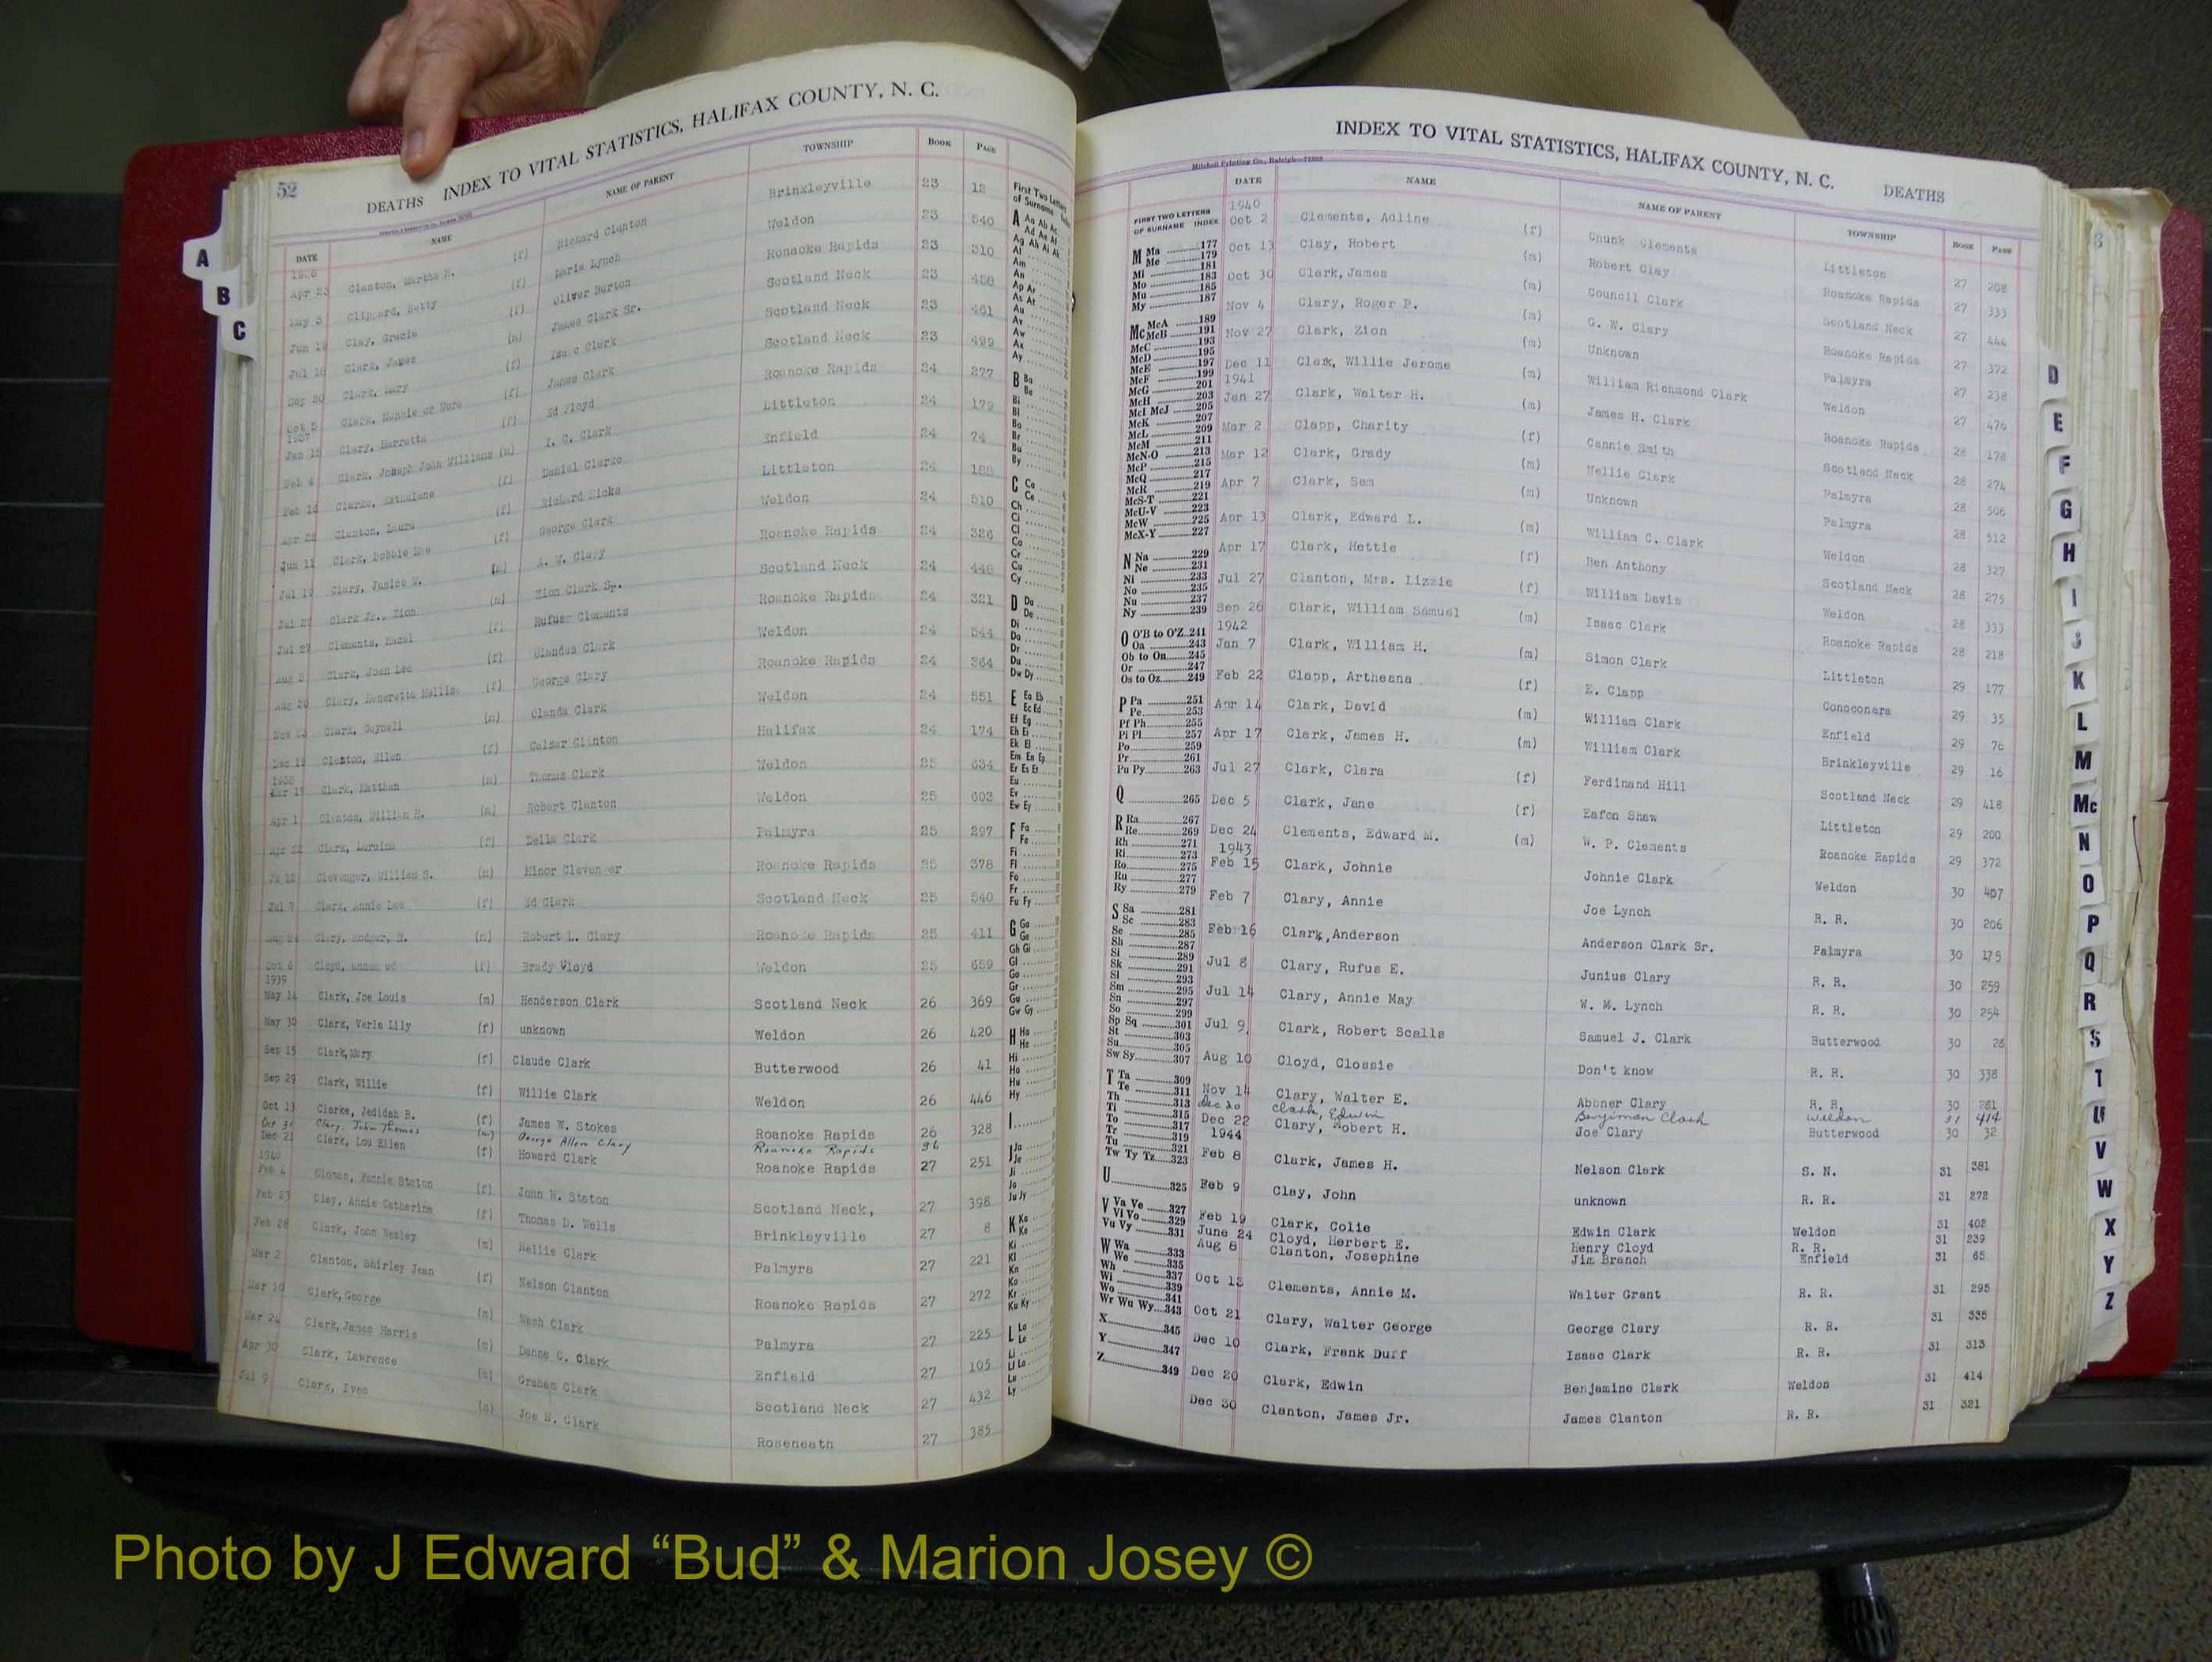 52
DEATHS INDEX TO VITAL STATISTICS, HALIFAX COUNTY, N. C.
DATE NAME NAME OF PARENT TOWNSHIP BOOK PAGE
Apr 23 Clanton, Martha (f) Richard Clanton Brinkleyville 23 12
(f) Maria Lynch Weldon 23 540
Jun Clay, Gracie (f) Oliver Burton Roanoke Rapids 23 310
Jul Clark, James (m) James Clark Sr. Scotland Neck 23 458
Sep 20 Clark, Mary (f) Isaac Clark Scotland Neck 23 461
Oct 5 Clark, Nannie or Nora (f) James Clark Scotland Neck 23 499
1937
Jan 15 Clary, Harretta (f) Ed Floyd Roanoke Rapids 24 277
Feb 4 Clark, Joseph John Williams (m) I. C. Clark Littleton 24 179
Feb Clarke, (f) Daniel Clarke Enfield 24 74
Clanton, Laura (f) Richard Hicks Littleton 24 188
Jun 11 Clark, Bobbie Mae (f) George Clark Weldon 24 510
Clary, Junice (m) A. W. Clary Roanoke Rapids 24 326
Jul 27 Clark Jr., Zion (m) Zion Clark Sr. Scotland Neck 24 448
Jul 27 Clements, Hazel (f) Rufus Clements Roanoke Rapids 24 321
Aug Clark, Joan Lee (f) Olandus Clark Weldon 24 544
Clary, (f) George Clary Roanoke Rapids 24 364
Nov Clark, (m) Olanda Clark Weldon 24 551
Dec Clanton, Ellen (f) Clinton Halifax 24 174
1938
Mar 17 Clark, (m) Thomas Clark Weldon 25 634
Apr 1 Clanton, William (m) Robert Clanton Weldon 25 603
Apr Clark, (f) Della Clark Palmyra 25 297
Clevenger, William S. (m) Minor Clevenger Roanoke Rapids 25 378
Jul 7 Clark, Annie Lee (f) Ed Clark Scotland Neck 25 540
Clary, R. (m) Robert L. Clary Roanoke Rapids 25 411
Oct 6 (f) Brady Weldon 25 659
1939
May 14 Clark, Joe Louis (m) Henderson Clark Scotland Neck 26 369
May 30 Clark, Verla Lily (f) unknown Weldon 26 420
Sep 15 Clark, Mary (f) Claude Clark Butterwood 26 41
Sep 29 Clark, Willie (f) Willie Clark Weldon 26 446
Oct 13 Clarke, Jedidah B. (f) James W. Stokes Roanoke Rapids 26 328
Oct 31 Clary, John Thomas (m) George Allen Clary Roanoke Rapids
Dec 21 Clark, Lou Ellen (f) Howard Clark Roanoke Rapids 27 251
1940
Feb 4 Fannie Staton (f) John W. Staton Scotland Neck, 27 398
Feb 23 Clay, Annie Catherine (f) Thomas D. Wells Brinkleyville 27 8
Feb 28 Clark, John Wesley (m) Nellie Clark Palmyra 27 221
Mar 2 Clanton, Shirley Jean (f) Nelson Clanton Roanoke Rapids 27 272
Mar 10 Clark, George (m) Wash Clark Palmyra 27 225
Mar 24 Clark, James Harris (m) C. Clark Enfield 27 105
Apr 30 Clark, Lawrence (m) Graham Clark Scotland Neck 27 432
Jul 9 Clark, Ives (m) Joe N. Clark Roseneath 27 385
First Two Letters of Surname
A B C
INDEX TO VITAL STATISTICS, HALIFAX COUNTY, N. C. DEATHS
Mitchell Printing Co., Raleigh
FIRST TWO LETTERS OF SURNAME INDEX
DATE NAME NAME OF PARENT TOWNSHIP BOOK PAGE
1940
Oct 2 Clements, Adline (f) Chunk Clements Littleton 27 208
Oct 13 Clay, Robert (m) Robert Clay Roanoke Rapids 27 333
Oct 30 Clark, James (m) Council Clark Scotland Neck 27 444
Nov 4 Clary, Roger P. (m) G. W. Clary Roanoke Rapids 27 372
Nov 27 Clark, Zion (m) Unknown Palmyra 27 238
Dec 11 Clark, Willie Jerome (m) William Richmond Clark Weldon 27 476
1941
Jan 27 Clark, Walter H. (m) James H. Clark Roanoke Rapids 28 178
Mar 2 Clapp, Charity (f) Cannie Smith Scotland Neck 28 274
Mar 12 Clark, Grady (m) Nellie Clark Palmyra 28 506
Apr 7 Clark, Sam (m) Unknown Palmyra 28 512
Apr 13 Clark, Edward L. (m) William C. Clark Weldon 28 327
Apr 17 Clark, Hettie (f) Ben Anthony Scotland Neck 28 275
Jul 27 Clanton, Mrs. Lizzie (f) William Davis Weldon 28 333
Sep 26 Clark, William Samuel (m) Isaac Clark Roanoke Rapids 28 218
1942
Jan 7 Clark, William H. (m) Simon Clark Littleton 29 177
Feb 22 Clapp, Artheana (f) E. Clapp Conoconara 29 35
Apr 14 Clark, David (m) William Clark Enfield 29 76
Apr 17 Clark, James H. (m) William Clark Brinkleyville 29 16
Jul 27 Clark, Clara (f) Ferdinand Hill Scotland Neck 29 418
Dec 5 Clark, Jane (f) Eafon Shaw Littleton 29 200
Dec 24 Clements, Edward M. (m) W. P. Clements Roanoke Rapids 29 372
1943
Feb 15 Clark, Johnie Johnie Clark Weldon 30 407
Feb 7 Clary, Annie Joe Lynch R. R. 30 206
Feb 16 Clark, Anderson Anderson Clark Sr. Palmyra 30 175
Jul 8 Clary, Rufus E. Junius Clary R. R. 30 259
Jul 14 Clary, Annie May W. M. Lynch R. R. 30 254
Jul 9 Clark, Robert Scalls Samuel J. Clark Butterwood 30 28
Aug 10 Cloyd, Clossie Don't know R. R. 30 338
Nov 14 Clary, Walter E. Abbner Clary R. R. 30 281
Dec 20 Clark, Edwin Benjiman Clark Weldon 31 414
Dec 22 Clary, Robert H. Joe Clary Butterwood 30 32
1944
Feb 8 Clark, James H. Nelson Clark S. N. 31 381
Feb 9 Clay, John unknown R. R. 31 272
Feb 19 Clark, Colie Edwin Clark Weldon 31 402
June 24 Cloyd, Herbert E. Henry Cloyd R. R. 31 239
Aug 8 Clanton, Josephine Jim Branch Enfield 31 65
Oct 13 Clements, Annie M. Walter Grant R. R. 31 295
Oct 21 Clary, Walter George George Clary R. R. 31 335
Dec 10 Clark, Frank Duff Isaac Clark R. R. 31 313
Dec 20 Clark, Edwin Benjamine Clark Weldon 31 414
Dec 30 Clanton, James Jr. James Clanton R. R. 31 321
M Ma 177
Me 179
Mi 181
Mo 183
Mu 185
My 187
Mc McA 189
McB 191
McC 193
McD 195
McE 197
McF 199
McG 201
McH 203
McI McJ 205
McK 207
McL 209
McM 211
McN-O 213
McP 215
McQ 217
McR 219
McS-T 221
McU-V 223
McW 225
McX-Y 227
N Na 229
Ne 231
Ni 233
No 235
Nu 237
Ny 239
O O'B to O'Z 241
Oa 243
Ob to On 245
Or 247
Os to Oz 249
P Pa 251
Pe 253
Pf Ph 255
Pi Pl 257
Po 259
Pr 261
Pu Py 263
Q 265
R Ra 267
Re 269
Rh 271
Ri 273
Ro 275
Ru 277
Ry 279
S Sa 281
Sc 283
Se 285
Sh 287
Si 289
Sk 291
Sl 293
Sm 295
Sn 297
So 299
Sp Sq 301
St 303
Su 305
Sw Sy 307
T Ta 309
Te 311
Th 313
Ti 315
To 317
Tr 319
Tu 321
Tw Ty Tz 323
U 325
V Va Ve 327
Vi Vo 329
Vu Vy 331
W Wa 333
We 335
Wh 337
Wi 339
Wo 341
Wr Wu Wy 343
X 345
Y 347
Z 349
D
E
F
G
H
I
J
K
L
M
Mc
N
O
P
Q
R
S
T
U
V
W
X
Y
Z
Photo by J Edward “Bud” & Marion Josey ©